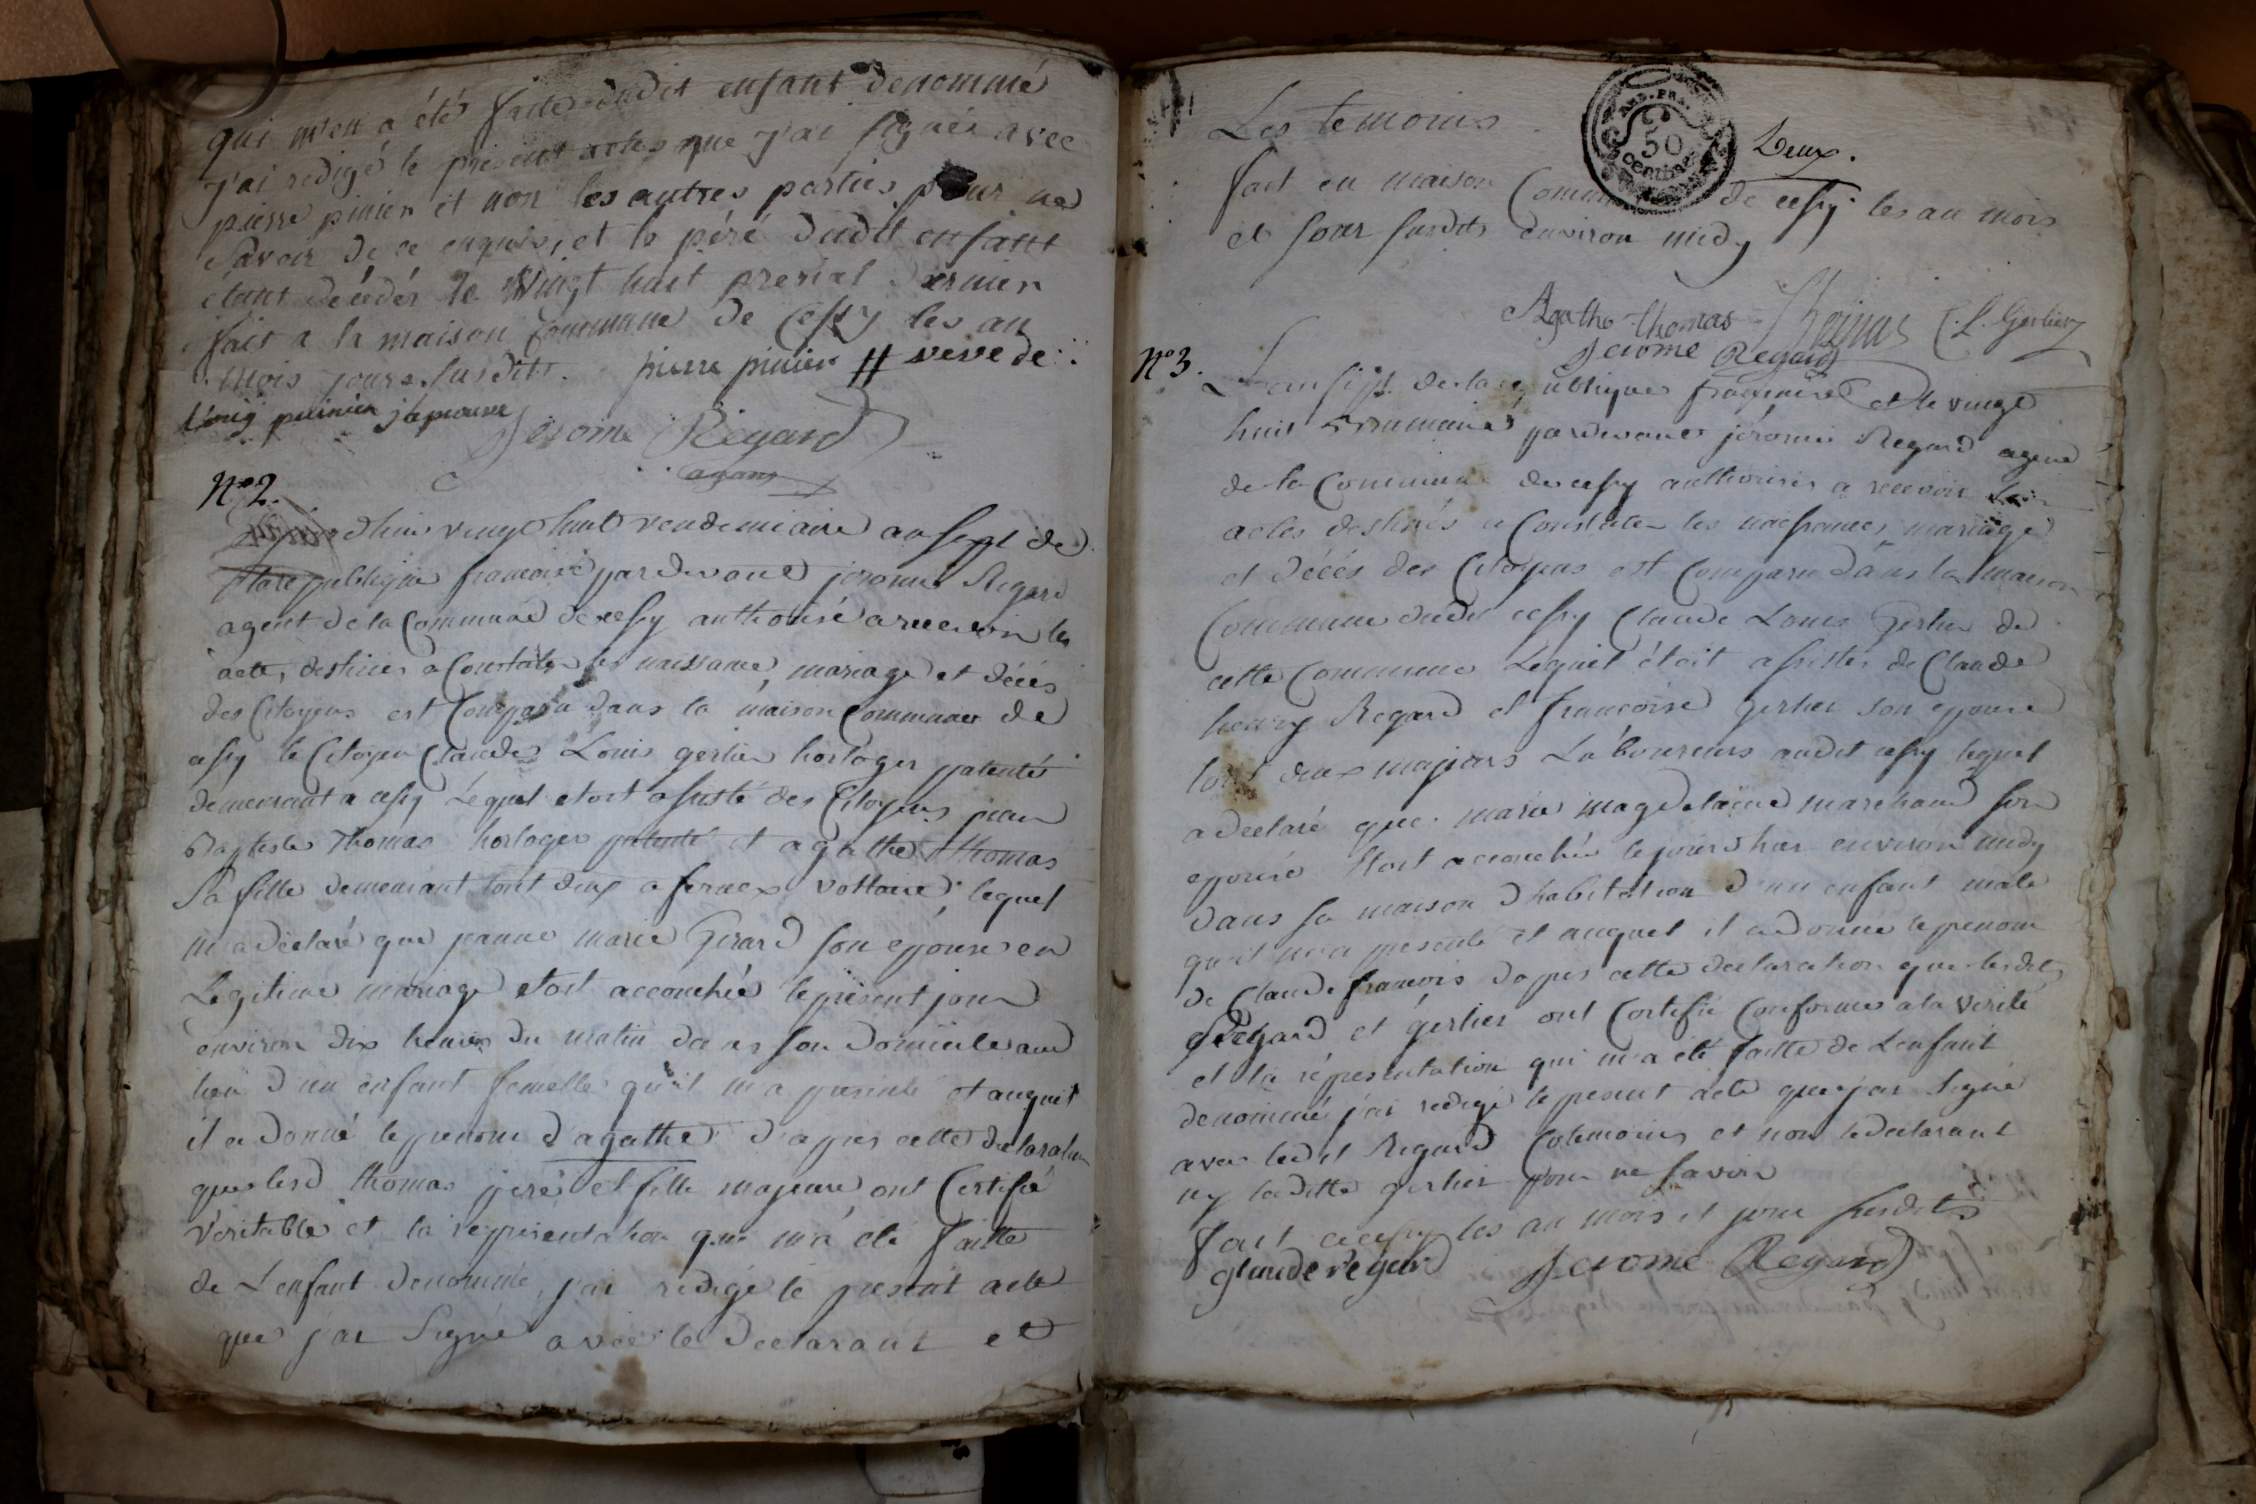 qui m'en a été faite dudit enfant denommé
j'ai redigé le présent actes que j'ai signés avec
pierre pinier et non les autres parties pour ne
savoir de ce enquis, et le péré dudit enfant
étant décédér le Vingt huit prerial dernier
fait a la maison Commune de Cessy les an
mois jours susdits. pierre pinier # veve de
Jerome Regard
agent
N° 2.
d'hui vingt huit vendemiaire an sept de
la republique francoise pardevant jerome Regard
agent de la Commune de cessy authorisé a recevoir les
acte, destinés a Constater les naissance, mariage et décés
des Citoyens est Comparu dans la maison Commune de
cessy le Citoyen Claude Louis gerlier horloger patenté
demeurant a cessy Lequel etoit assisté des Citoyens jean
Baptiste Thomas horloger patenté et agathe thomas
sa fille demeurant tout deux a fernex voltaire, lequel
m'a déclaré que jeanne marie Girard son epouse en
Legitime mariage etoit accouchée le présent jour
environ dix heures du matin dans son Domicile aud
lieu d'un enfant femelle qu'il m'a presenté et auquel
il a donné le prenom d'agathe d'apres cette declaration
que lesd thomas peré et fille majeure ont Certifié
Veritable et la representation qui m'a été faitte
de L'enfant denommé, j'ai redigé le present acte
que j'ai Signé avec le Declarant et
Les temoins
50
centimes
Deux.
fait en maison Commune de cessy les an mois
et jour susdits environ midy
Agathe thomas Thomas C. L. Gerlier
Jerome Regard
N° 3.
L'an sept de la republique françoise et le vingt
huit Brumaire pardevant jéromé Regard agent
de la Commune de cessy authorisés a recevoir les
actes destinés a Constater les naissances, mariage
et décés des Citoyens est Comparu dans la maison
Commune dudit cessy Claude Louis Gerlier de
cette Commune Lequel étoit assistés de Claude
henry Regard et francoise Gerlier son epouse
tout deux majeurs Laboureurs audit cessy lequel
a declaré que marie magdelaine marchand son
epouse etoit accouchée le jour d'hier environ midy
dans sa maison d'habitation d'un enfant male
qu'il m'a presenté et auquel il a donné le prenom
de Claude francois dapres cette declaration que lesdits
Regard et gerlier ont Certifié Conforme a la verité
et la répresentation qui m'a été faitte de L'enfant
denommé j'ai redigé le present acte que j'ai Signé
avec ledit Regard Cotemoins et non le declarant
ny laditte gerlier pour ne savoir
fait a cessy les an mois et jour susdits
glaude regard Jerome Regard